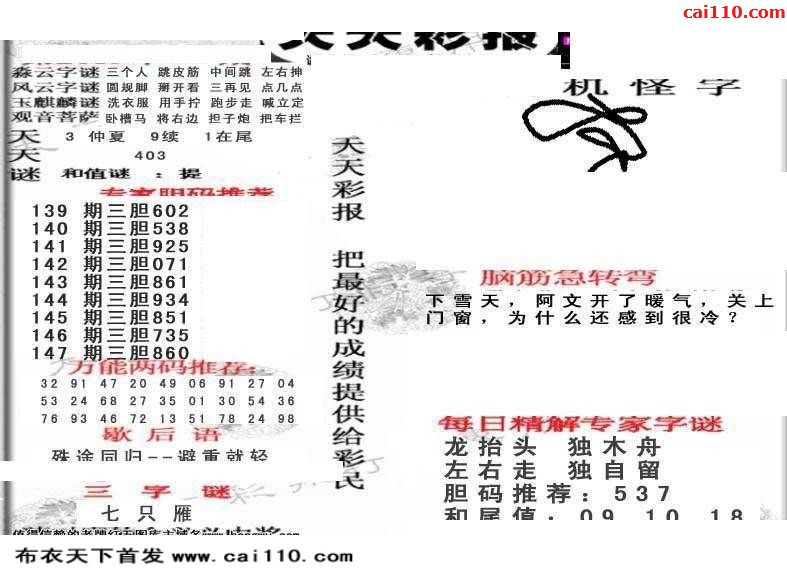 cai110.com
天天彩报
机怪字
森云字谜 三个人 跳皮筋 中间跳 左右抻
风云字谜 圆规脚 掰开看 三再见 点几点
玉麒麟谜 洗衣服 用手拧 跑步走 喊立定
观音菩萨 卧槽马 将右边 担子炮 把车拦
天 3 仲夏 9续 1在尾
天 403
谜 和值谜 : 提
专家胆码推荐
139 期三胆602
140 期三胆538
141 期三胆925
142 期三胆071
143 期三胆861
144 期三胆934
145 期三胆851
146 期三胆735
147 期三胆860
万能两码推荐:
32 91 47 20 49 06 91 27 04
53 24 68 27 35 01 30 54 36
76 93 46 72 13 51 78 24 98
歇后语
殊途同归--避重就轻
三字谜
七只雁
天天彩报 把最好的成绩提供给彩民
脑筋急转弯
下雪天，阿文开了暖气，关上
门窗，为什么还感到很冷？
每日精解专家字谜
龙抬头 独木舟
左右走 独自留
胆码推荐: 537
和尾值: 09 10 18
布衣天下首发 www.cai110.com